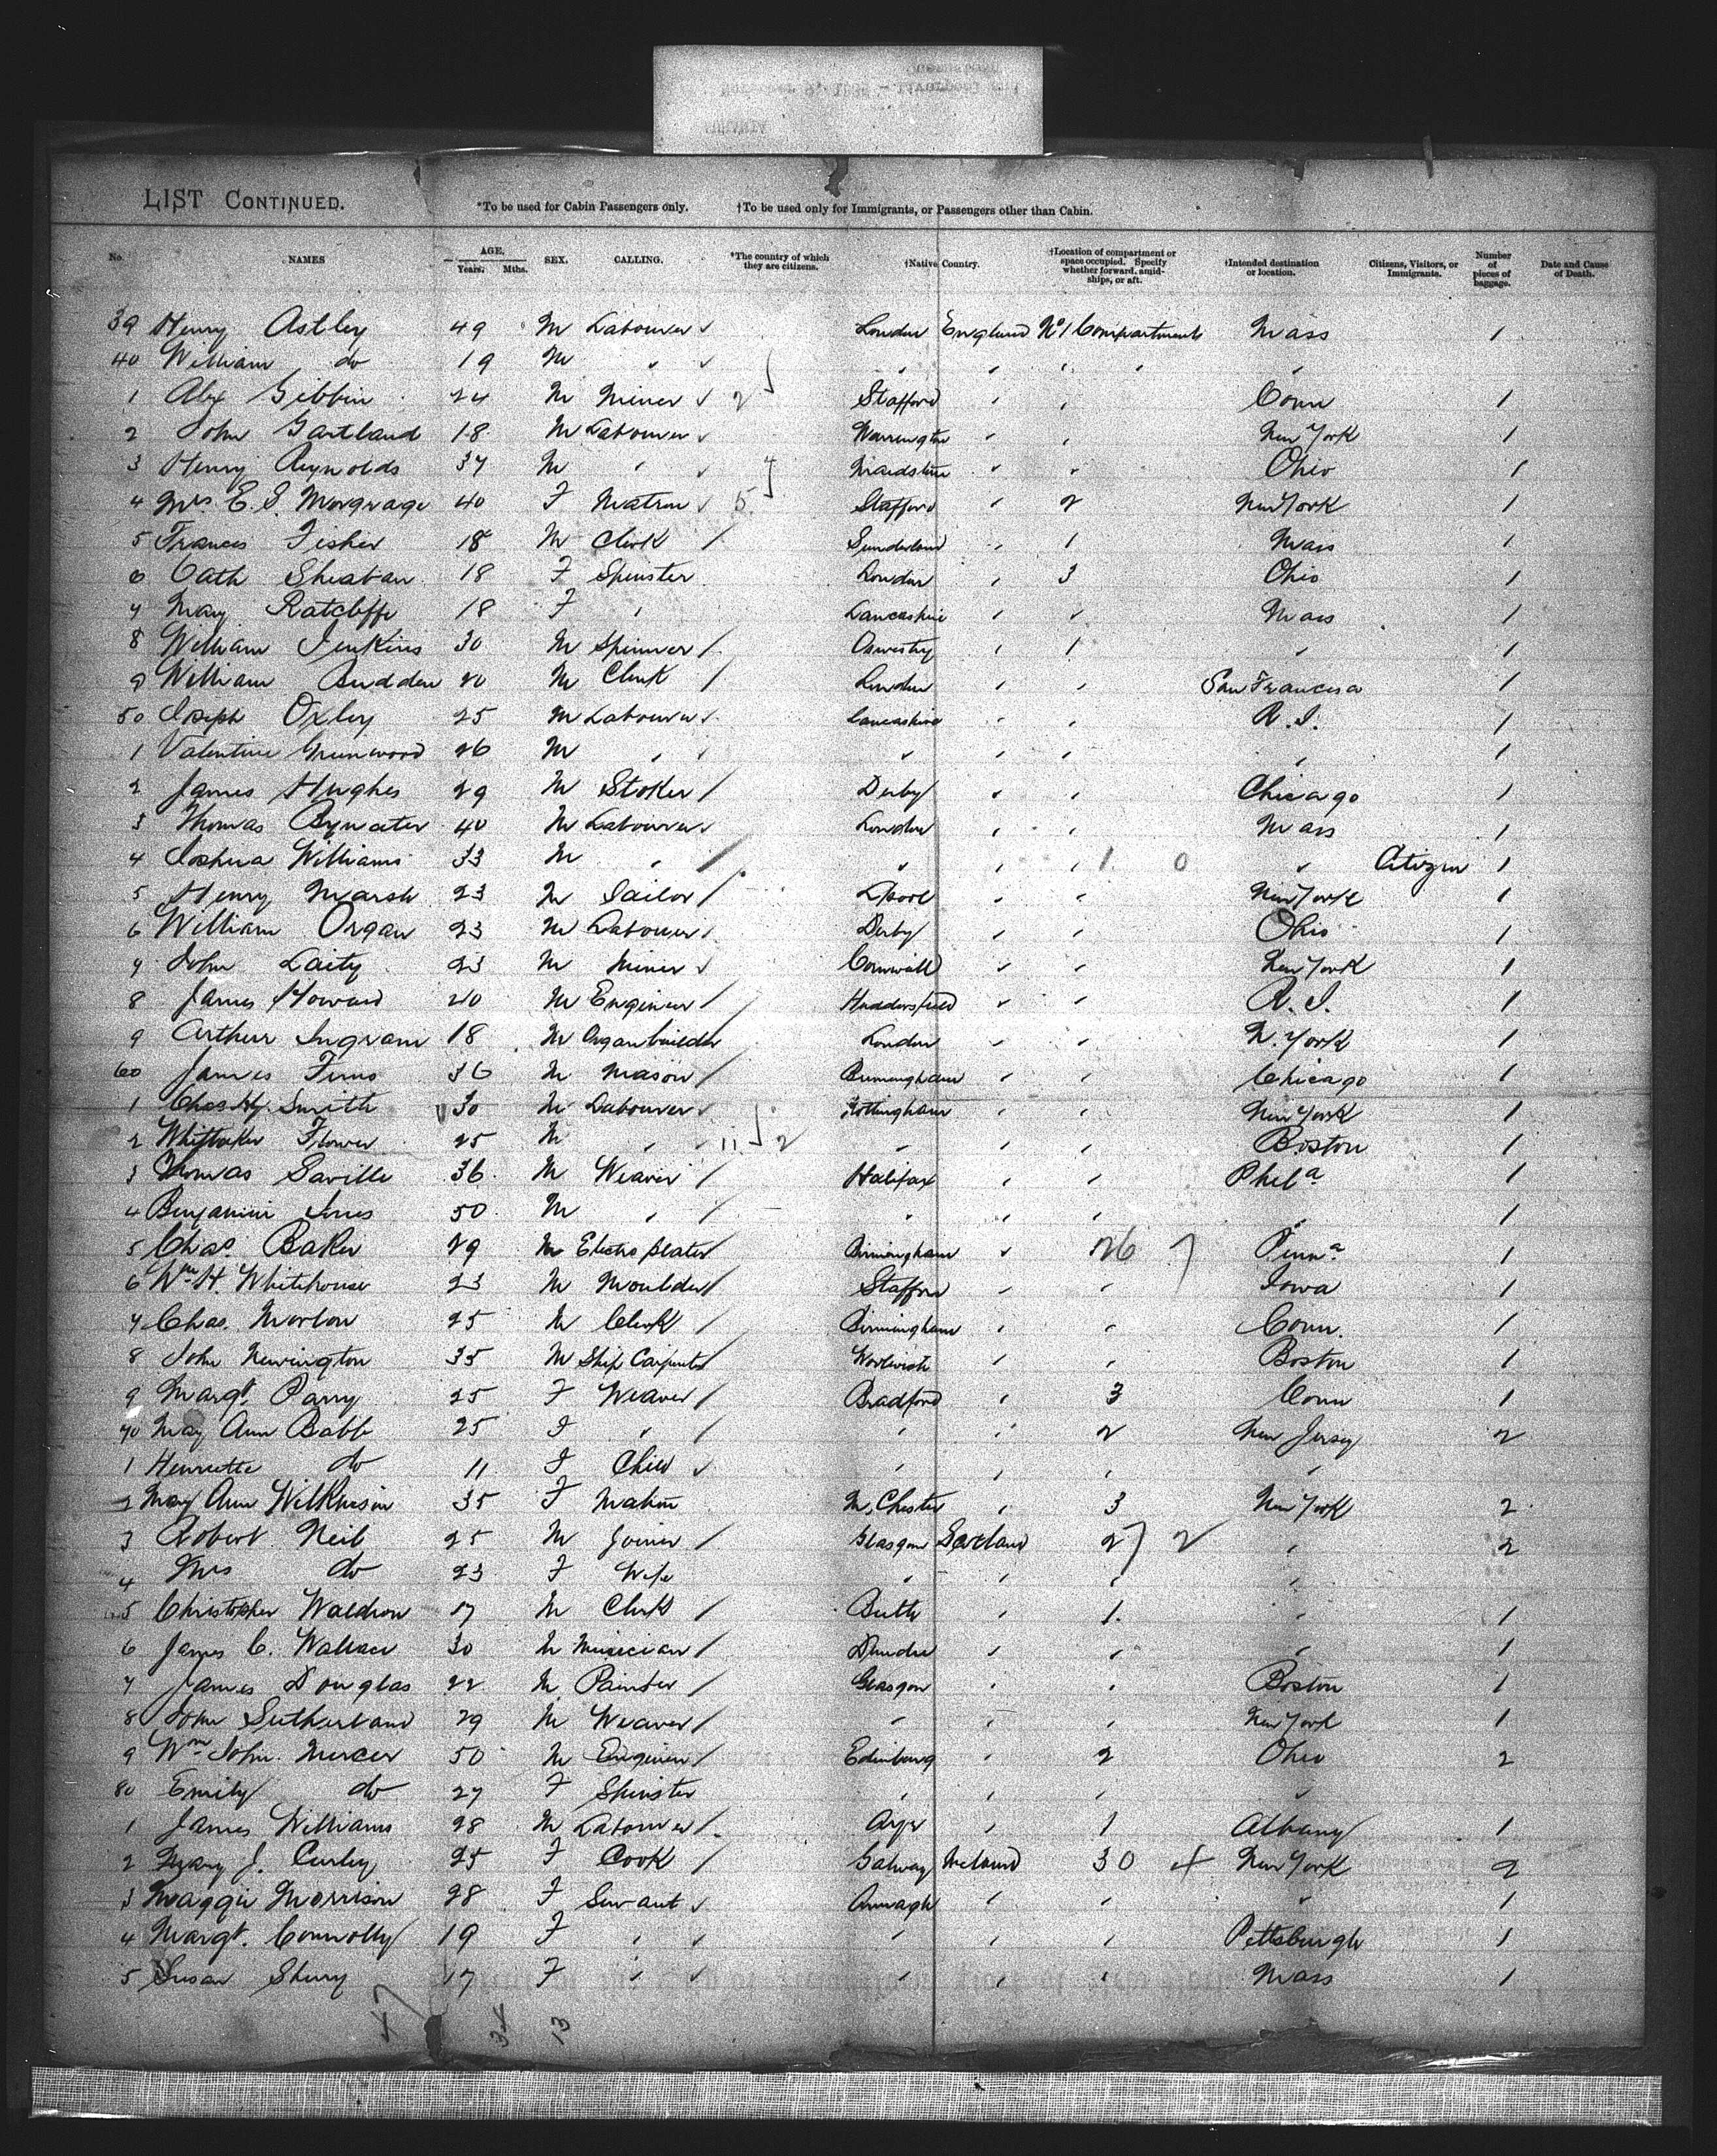 LIST CONTINUED. *To be used for Cabin Passengers only. †To be used only for Immigrants, or Passengers other than Cabin.
No. NAMES AGE. Years. Mths. SEX. CALLING. *The country of which they are citizens. †Native Country. †Location of compartment or space occupied. Specify whether forward, amidships, or aft. †Intended destination or location. Citizens, Visitors, or Immigrants. Number of pieces of baggage. Date and Cause of Death.
39 Henry Astley 49 M Labourer London England No 1 Compartment Mass 1
40 William do 19 M " " " " "
1 Alex Gibbin 24 M Miner 2 Stafford " " Conn 1
2 John Gartland 18 M Labourer Warrington " " New York 1
3 Henry Reynolds 37 M " Maidstone " " Ohio 1
4 Mrs E. S. Morgrage 40 F Matron 5 Stafford " 2 New York 1
5 Frances Fisher 18 M Clerk Sunderland " 1 Mass 1
6 Cath Sheaban 18 F Spinster London " 3 Ohio 1
7 Mary Ratcliffe 18 F " Lancashire " " Mass 1
8 William Jenkins 30 M Spinner Oswestry " 1 " 1
9 William Budden 20 M Clerk London " " San Francisco 1
50 Joseph Oxley 25 M Labourer Lancashire " " R. I. 1
1 Valentine Greenwood 26 M " " " " " 1
2 James Hughes 29 M Stoker Derby " " Chicago 1
3 Thomas Bywater 40 M Labourer London " " Mass 1
4 Joshua Williams 33 M " " " " 1 0 " Citizen 1
5 Henry Marsh 23 M Sailor L'pool " " New York 1
6 William Organ 23 M Labourer Derby " " Ohio 1
7 John Laity 23 M Miner Cornwall " " New York 1
8 James Howard 20 M Engineer Huddersfield " " R. I. 1
9 Arthur Ingram 18 M Organ builder London " " N. York 1
60 James Tims 36 M Mason Birmingham " " Chicago 1
1 Chas Hy. Smith 30 M Labourer Nottingham " " New York 1
2 Whittaker Flower 25 M " 11 2 " " " Boston 1
3 Thomas Saville 36 M Weaver Halifax " " Phila 1
4 Benjamin Jones 50 M " " " " " 1
5 Chas Baker 29 M Electro plater Birmingham " 26 Penna 1
6 Wm H. Whitehouse 23 M Moulder Stafford " " Iowa 1
7 Chas. Morton 25 M Clerk Birmingham " " Conn. 1
8 John Newington 35 M Ship Carpenter Woolwich " " Boston 1
9 Margt. Parry 25 F Weaver Bradford " 3 Conn 1
70 Mary Ann Babb 25 F " " " 2 New Jersey 2
1 Henrietta do 11 F Child " " " "
2 Mary Ann Wilkinson 35 F Matron M,Chester " 3 New York 2
3 Robert Neil 25 M Joiner Glasgow Scotland 2 2 " 2
4 Mrs do 23 F Wife " " " "
5 Christopher Waldron 17 M Clerk Bute " 1 " 1
6 James C. Wallace 30 M Musician Dundee " " " 1
7 James Douglas 22 M Painter Glasgow " " Boston 1
8 John Sutherland 29 M Weaver " " " New York 1
9 Wm John. Mercer 50 M Engineer Edinburg " 2 Ohio 2
80 Emily do 27 F Spinster " " " "
1 James Williams 28 M Labourer Ayr " 1 Albany 1
2 Mary J. Curley 25 F Cook Galway Ireland 3 0 4 New York 2
3 Maggie Morrison 28 F Servant Armagh " " " 1
4 Margt. Connolly 19 F " " " " Pittsburgh 1
5 Susan Sherry 17 F " " " " Mass 1
47 34 13